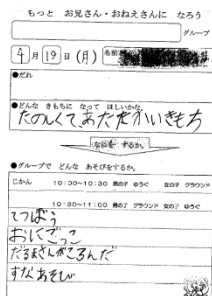 もっと お兄さん・おねえさんに なろう
グループ
4月19日(月) 名前
●だれ
●どんな きもちに なって ほしいかな。
たのしくてあたたかいきもち
なにを するか。
●グループで どんな あそびをするか。
じかん 10:00～10:30 男の子 ゆうぐ 女の子 グラウンド
10:30～11:00 男の子 グラウンド 女の子 ゆうぐ
てつぼう
おにごっこ
だるまさんがころんだ
すなあそび